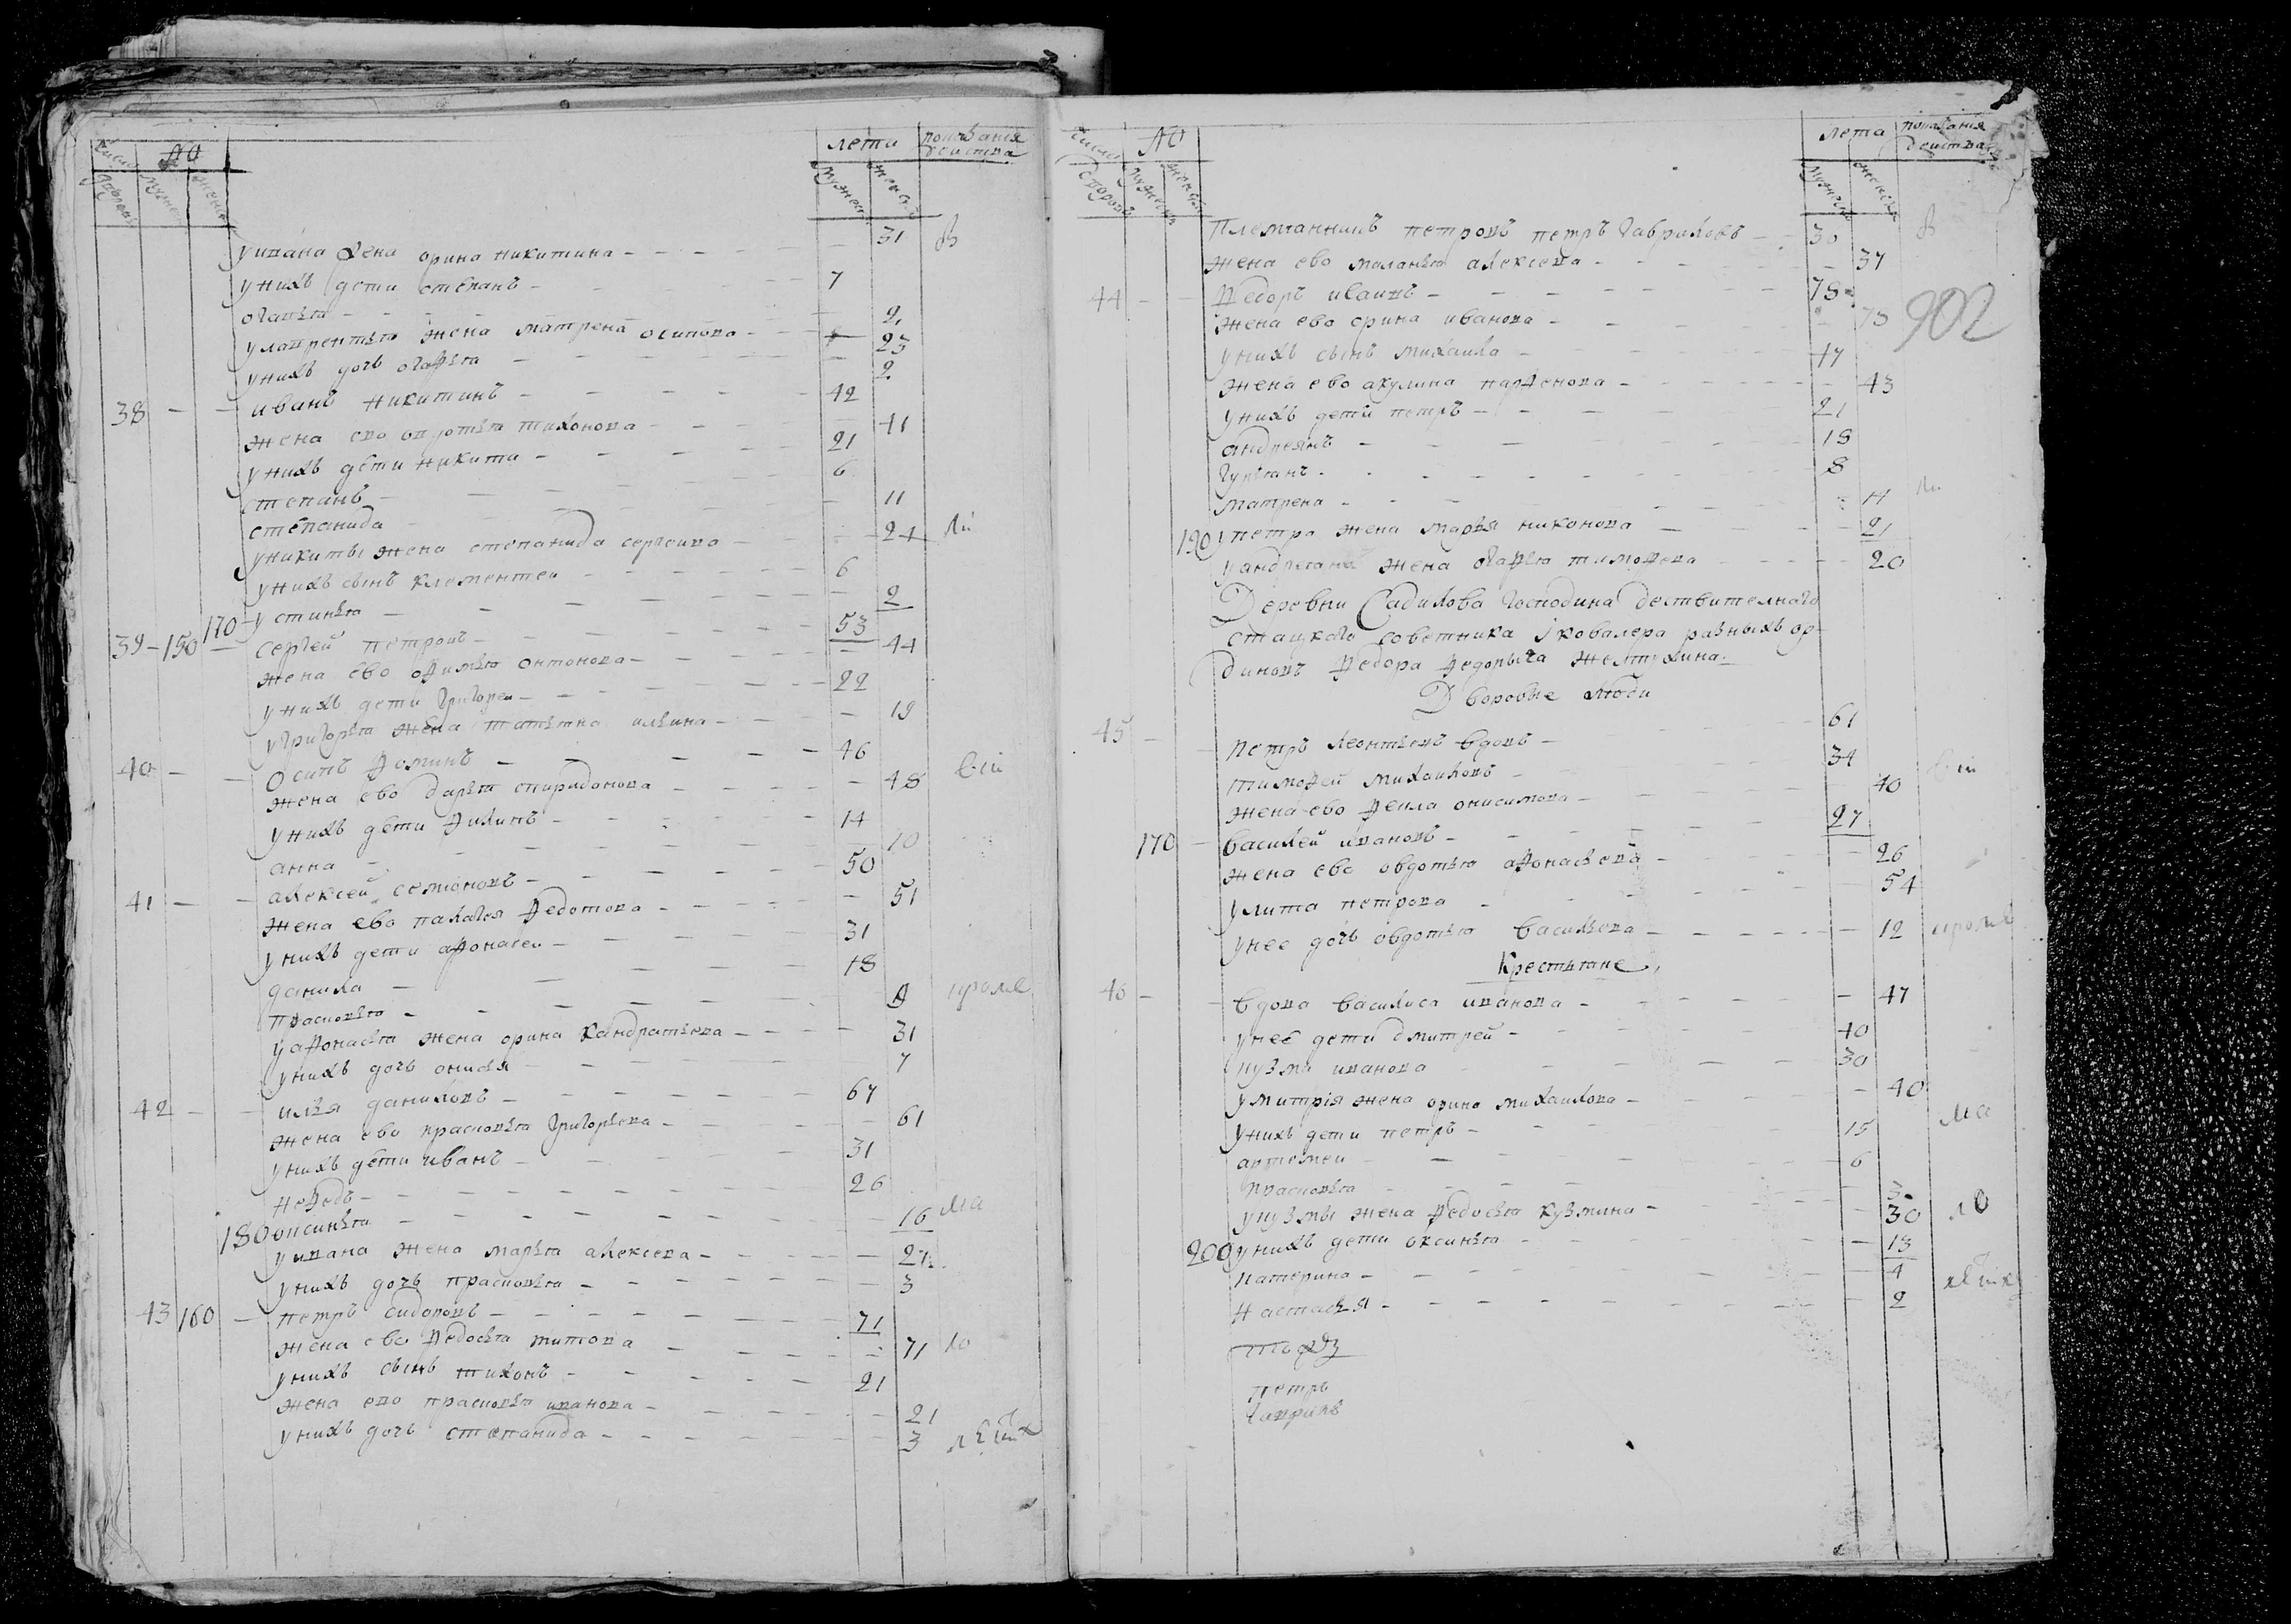 числа №
лета показания
действа
дворовъ мужеск женск
мужеск женск
уивана жена орина никитина - 31
унихъ дети степанъ - 7
огафья - 2
улаврентья жена матрена осипова - 23
унихъ дочь огафья - 2
38 - - иванъ никитинъ - 42
жена ево овдотья тихонова - 41
унихъ дети никита - 21
степанъ - 6
степанида - 11
уникиты жена степанида сергеива - 24
унихъ сынъ клементеи - 6
170 устинья - 2
39 - 150 - сергей петровъ - 53
жена ево офимья онтонова - 44
унихъ дети григореи - 22
угригорья жена татьяна ильина - 19
40 - - осипъ фоминъ - 46
жена ево дарья спиридонова - 48
унихъ дети филипъ - 14
анна - 10
41 - - алексей семионовъ - 50
жена ево палагея федотова - 51
унихъ дети афонасеи - 31
данила - 18
прасковья -
уафонасья жена орина кандратьева - 31
унихъ дочь онисья - 7
42 - - илья даниловъ - 67
жена ево прасковья григорьева - 61
унихъ дети иванъ - 31
нефедъ - 26
180 оксинья - 16
уивана жена марья алексеева - 27
унихъ дочь прасковья - 3
43 160 - петръ сидоровъ - 71
жена ево федосья титова - 71
унихъ сынъ тихонъ - 21
жена ево прасковья иванова - 21
унихъ дочь степанида - 3
числа №
лета показания
действа
дворовъ мужеск женск
мужеск женск
племянникъ петровъ петръ гавриловъ - 30
жена ево маланья алексеева - 37
902
44 - - федоръ иваинъ - 78
жена ево орина иванова - 73
унихъ сынъ михаила - 47
жена ево акулина парфенова - 43
унихъ дети петръ - 21
андреянъ - 18
гурьянъ - 8
матрена - 11
190 упетра жена марья никонова - 21
уандреяна жена огафья тимофеева - 20
Деревни Садилова господина дествителнаго
стацкаго советника i ковалера разныхъ ор
диновъ федора федорыча желтухина
Дворовые люди
45 - - петръ леонтьевъ вдовъ - 61
тимофеи михаиловъ - 34
жена ево фекла онисимова - 40
170 - василей ивановъ - 27
жена ево овдотья афонасьева - 26
улита петрова - 54
унее дочь овдотья васильева - 12
Крестьяне
46 - - вдова василиса иванова - 47
унее дети дмитрей - 40
кузма иванова - 30
умитрiя жена орина михаилова - 40
унихъ дети петръ - 15
артемеи - 6
прасковья - 3
укузмы жена федосья кузмина - 30
200 унихъ дети оксинья - 13
катерина - 4
настасья - 2
петръ
гаврилъ